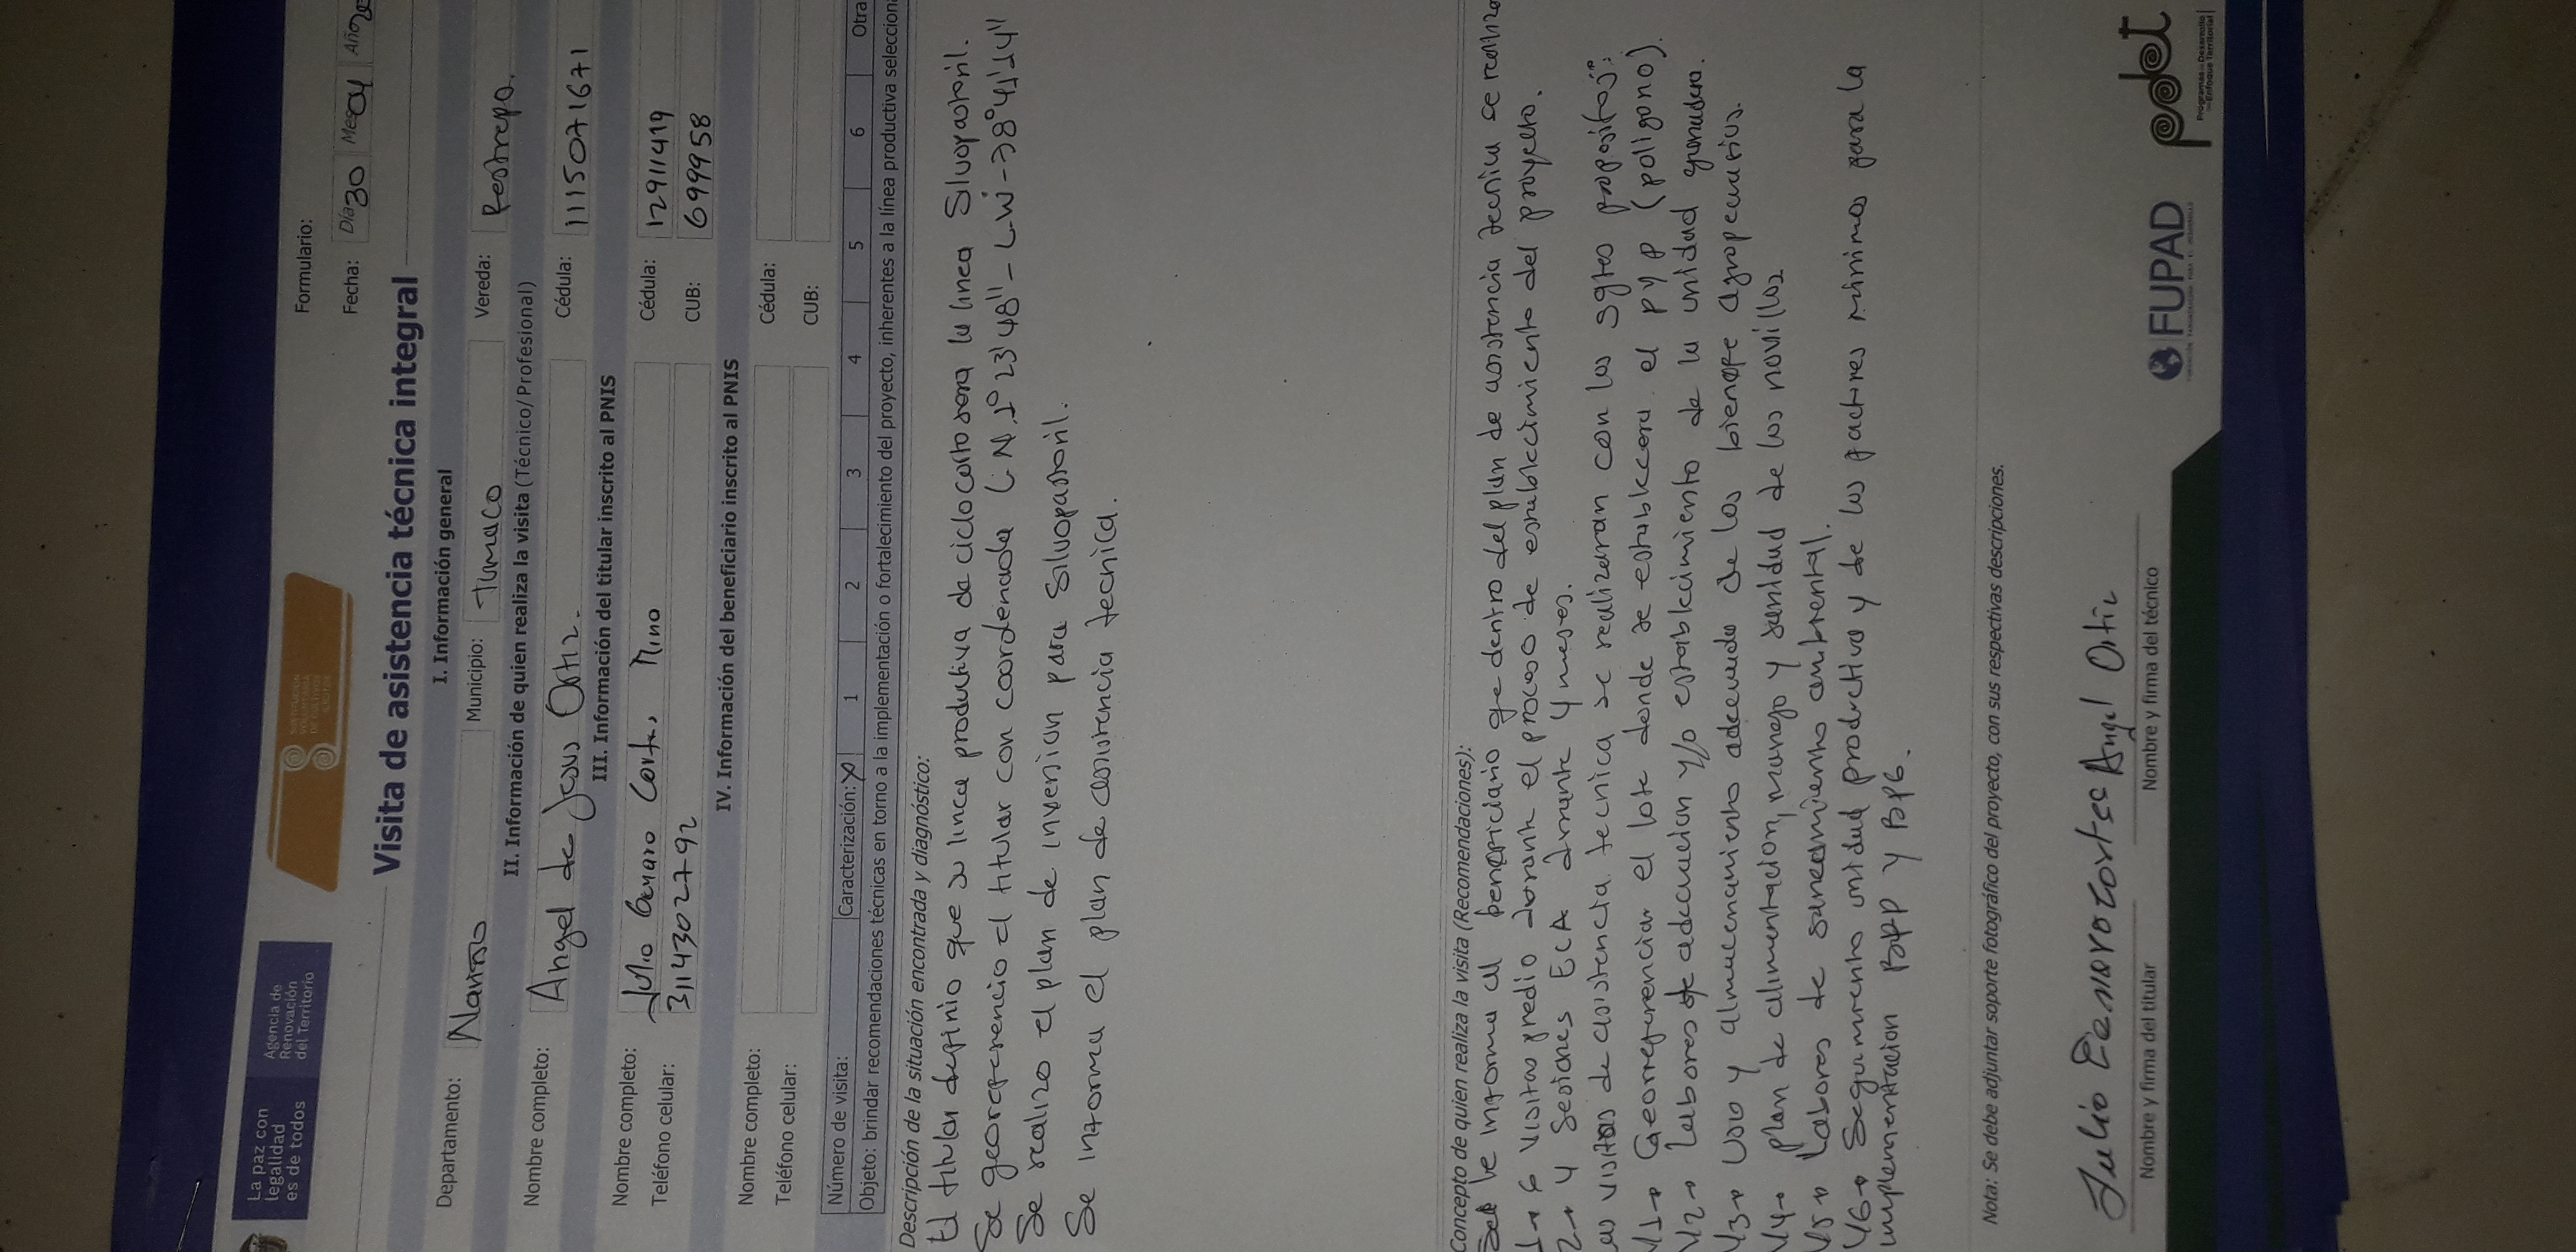 La paz con
legalidad
es de todos
Agencia de
Renovación
del Territorio
Formulario:
Fecha: Día 30 Mes 04 Año
Visita de asistencia técnica integral
I. Información general
Departamento: Nariño Municipio: Tumaco Vereda: Restrepo.
II. Información de quien realiza la visita (Técnico/Profesional)
Nombre completo: Angel de Jesus Ortiz. Cédula: 1115071671
III. Información del titular inscrito al PNIS
Nombre completo: Julio Genaro Cortes Mino Cédula: 12911419
Teléfono celular: 3114302792 CUB: 699958
IV. Información del beneficiario inscrito al PNIS
Nombre completo: Cédula:
Teléfono celular: CUB:
Número de visita: Caracterización: X 1 2 3 4 5 6 Otra
Objeto: brindar recomendaciones técnicas en torno a la implementación o fortalecimiento del proyecto, inherentes a la línea productiva
Descripción de la situación encontrada y diagnóstico:
El titular definio que su linea productiva de ciclo corto sera la linea Silvopastoril.
Se georeferencio el titular con coordenada L.N. 1° 23' 48" - L.W -78° 41' 14"
Se realizo el plan de inversion para Silvopastoril.
Se informa el plan de asistencia tecnica.
Concepto de quien realiza la visita (Recomendaciones):
le informa al beneficiario que dentro del plan de asistencia tecnica se realizo
1→ 6 visitas predio durante el proceso de establecimiento del proyecto.
2→ 4 Sesiones ECA durante 4 meses.
las visitas de asistencia tecnica se realizaran con los sgtes propositos:
V1→ Georreferenciar el lote donde se establecera el PYP (poligono).
V2→ Labores de adecuacion y/o establecimiento de la unidad ganadera.
V3→ Uso y almacenamiento adecuado de los bienes agropecuarios.
V4→ plan de alimentacion, manejo y sanidad de los novillos
V5→ Labores de saneamiento ambiental.
V6→ Seguimiento unidad productiva y de los factores minimos para la
implementacion BPP y BPG.
Nota: Se debe adjuntar soporte fotográfico del proyecto, con sus respectivas descripciones.
Julio Genaro Cortes Angel Ortiz
Nombre y firma del titular Nombre y firma del técnico
FUPAD
pdet
Programas de Desarrollo
con Enfoque Territorial